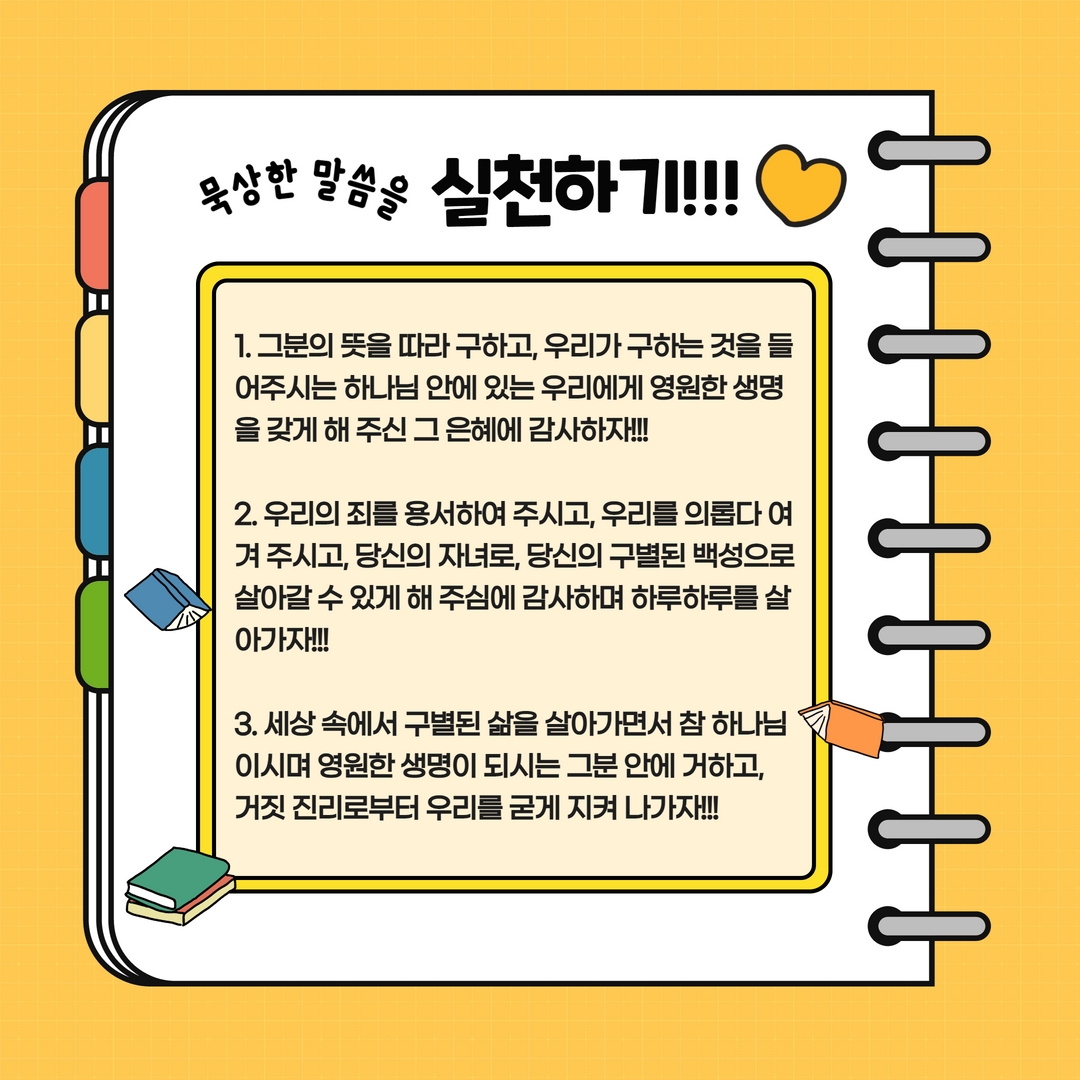 묵상한 말씀을 실천하기!!!
1. 그분의 뜻을 따라 구하고, 우리가 구하는 것을 들
어주시는 하나님 안에 있는 우리에게 영원한 생명
을 갖게 해 주신 그 은혜에 감사하자!!!
2. 우리의 죄를 용서하여 주시고, 우리를 의롭다 여
겨 주시고, 당신의 자녀로, 당신의 구별된 백성으로
살아갈 수 있게 해 주심에 감사하며 하루하루를 살
아가자!!!
3. 세상 속에서 구별된 삶을 살아가면서 참 하나님
이시며 영원한 생명이 되시는 그분 안에 거하고,
거짓 진리로부터 우리를 굳게 지켜 나가자!!!